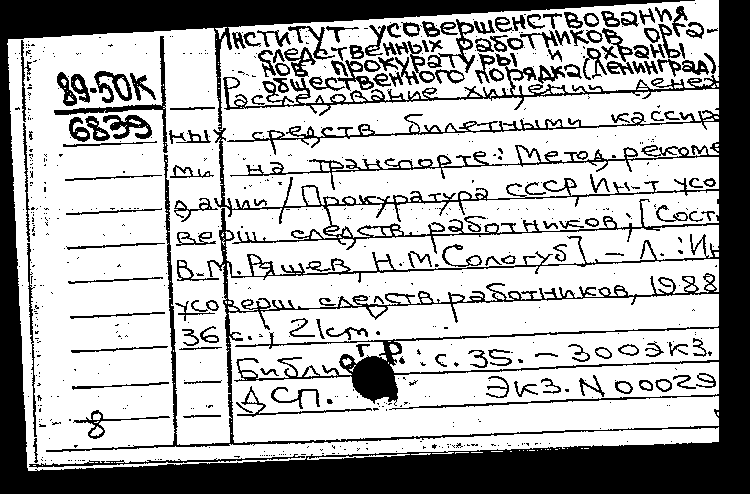 Институт усовершенствования
следственных работников орга-
нов прокуратуры и охраны
общественного порядка (Ленинград)
89-50К
6839
Расследование хищений денеж
ных средств билетными кассира
ми на транспорте: Метод. рекомен
дации / Прокуратура СССР, Ин-т усо
верш. следств. работников; [Сост.
В.М. Ряшев, Н.М. Сологуб]. - Л. : Ин
усоверш. следств. работников, 1988
36 с. ; 21 cm.
Библиогр. : с. 35. - 300 экз.
ДСП. Экз. N 00029
8